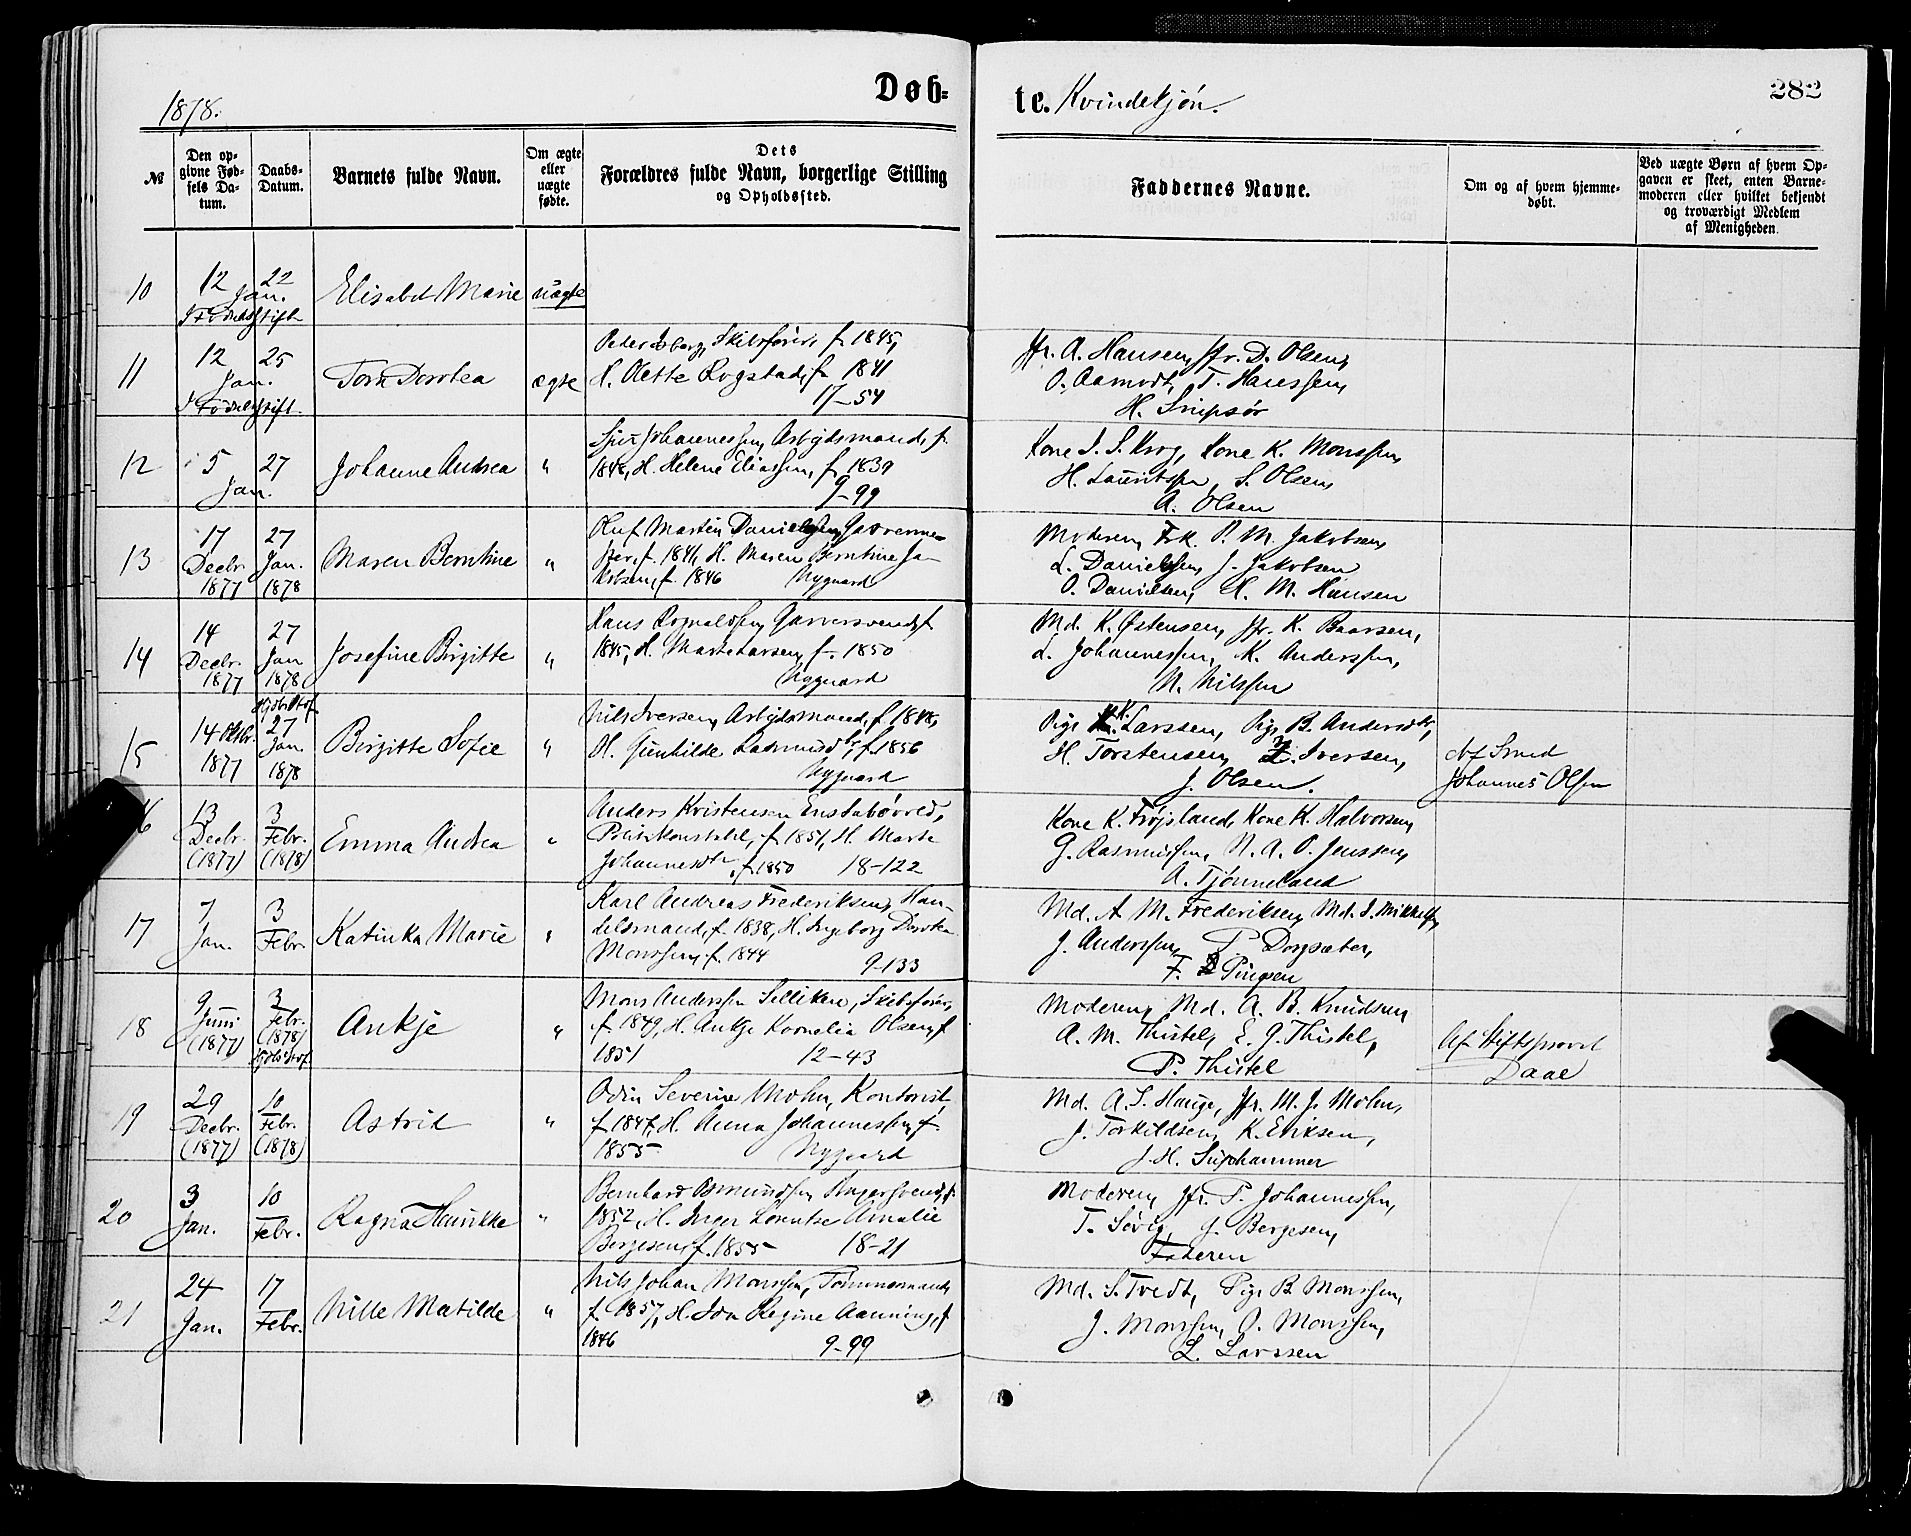 1878.
Døb-
te. Kvindekjön.
282
№
Den op-
givne Fød-
sels Da-
tum.
Daabs-
Datum.
Barnets fulde Navn.
Om ægte
eller
uægte
fødte.
Dets
Forældres fulde Navn, borgerlige Stilling
og Opholdssted.
Faddernes Navne.
Om og af hvem hjemme-
døbt.
Ved uægte Børn af hvem Op-
gaven er skeet, enten Barne-
moderen eller hvilket bekjendt
og troværdigt Medlem
af Menigheden.
10 12 22 Jan. Elisabet Marie uægte
I Fødselsstift.
11 12 25 Jan. Tora Dorotea ægte
I Fødselsstift.
Peder Isberg, Skibsfører, f. 1845,
H. Olette Rogstad, f. 1841
17-54
Jfr. A. Hansen, Jfr. D. Olsen,
O. Aamodt, T. Hanssen,
H. Snipsör
12 5 27 Jan. Johanne Andrea "
Sjur Johannessen, Arbejdsmand, f.
1848, H. Helene Eliassen, f. 1839
9-99
Kone I. S. Krog, Kone K. Monssen,
H. Lauritssen, S. Olsen,
A. Olsen
13 17 Decbr. 1877 27 Jan. 1878 Maren Berntine "
Oluf Martin Danielsen, Garverme-
ster, f. 1841, H. Maren Berntine Ja-
kobsen, f. 1846 Nygaard
Moderen, Frk. P. M. Jakobsen,
L. Danielsen, J. Jakobsen
O. Danielsen, H. M. Hansen
14 14 Decbr. 1877 27 Jan 1878 Josefine Birgitte "
Hans Rognaldsen, Garversvend, f.
1845, H. Marta Larsen, f. 1850
Nygaard
Md. K. Østensen, Jfr. K. Baarsen,
L. Johannessen, K. Anderssen,
N. Nilssen
15 14 Oktbr. 1877 Hjdbt. Stadf. 27 Jan. 1878 Birgitte Sofie "
Nils Iversen, Arbejdsmand, f. 1848,
H. Gunhilde Rasmusdtr, f. 1856
Nygaard
Pige K. Larssen, Pige B. Andersdtr,
H. Torstensen, Iversen,
J. Olsen.
Af Smed
Johannes Olsen
16 13 Decbr. (1877) 3 Febr. (1878) Emma Andrea "
Anders Kristensen
Politikonstabel, f. 1851, H. Marta
Johannesdtr, f. 1850 18-122
Kone K. Frøjsland, Kone K. Halvorsen,
G. Rasmussen, N. A. O. Jenssen,
A. Tjønneland
17 7 Jan. 3 Febr. Katinka Marie "
Karl Andreas Frederiksen, Han-
delsmand, f. 1838, H. Ingeborg Dorotea
Monssen, f. 1844 9-133
Md. A. M. Frederiksen, Md. I. Mikkelsen,
J. Anderssen, P. Dorpsæter,
F. Pingsen
18 9 Juni (1877) 3 Febr. (1878) Hjdbt. Stadf. Ankje "
Mons Anderssen Selliken, Skibsfører,
f. 1849, H. Ankje Kornelia Olsen, f.
1851 12-43
Moderen, Md. A. B. Knudsen,
A. M. Thistel, E. G. Thistel,
P. Thistel
Af Stiftsprovst
Daae
19 29 Decbr. (1877) 10 Febr. (1878) Astrid "
Odin Severin Mohn, Kontorist,
f. 1847, H. Anna Johannessen, f.
1855 Nygaard
Md. A. S. Hauge, Jfr. M. J. Mohn,
J. Torkildsen, K. Eriksen,
J. H. Suphammer
20 3 Jan. 10 Febr. Ragna Henrikke "
Bernhard Asmundsen, Svend, f.
1852, H. Inger Lorentse Amalie
Børgesen, f. 1855 18-21
Moderen, Jfr. P. Johannessen,
T. Sørvig, J. Børgesen,
Faderen
21 24 Jan. 17 Febr. Nille Matilde "
Nils Johan Monssen, Tømmermand,
f. 1857, H. Ida Regine Aanning, f.
1846 9-99
Md. S. Tvedt, Pige B. Monssen,
J. Monssen, O. Monssen,
L. Larssen